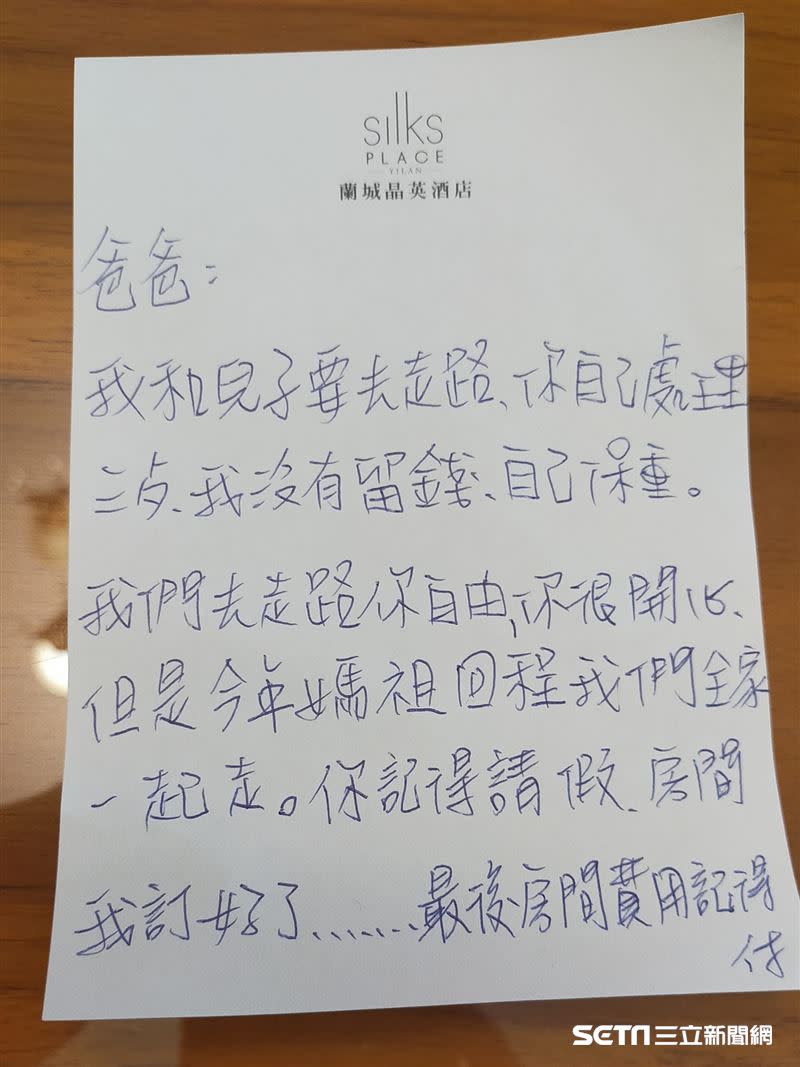 silks
PLACE
YILAN
蘭城晶英酒店
爸爸：
我和兒子要去走路、你自己處理
三点、我沒有留錢、自己保重。
我們去走路你自由，你很開心、
但是今年媽祖回程我們全家
一起走。你記得請假、房間
我訂好了.......最後房間費用記得
付
SETN三立新聞網